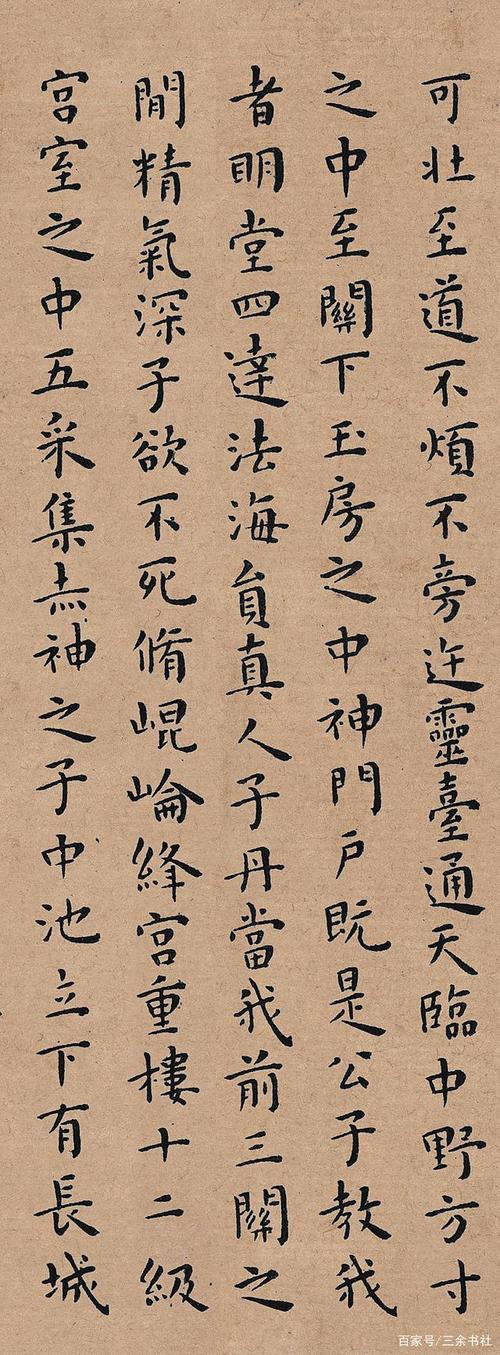 可壯至道不煩不旁迕靈臺通天臨中野方寸
之中至關下玉房之中神門戶既是公子教我
者明堂四達法海員真人子丹當我前三關之
閒精氣深子欲不死脩崐崘絳宮重樓十二級
宮室之中五采集赤神之子中池立下有長城
百家号/三余书社